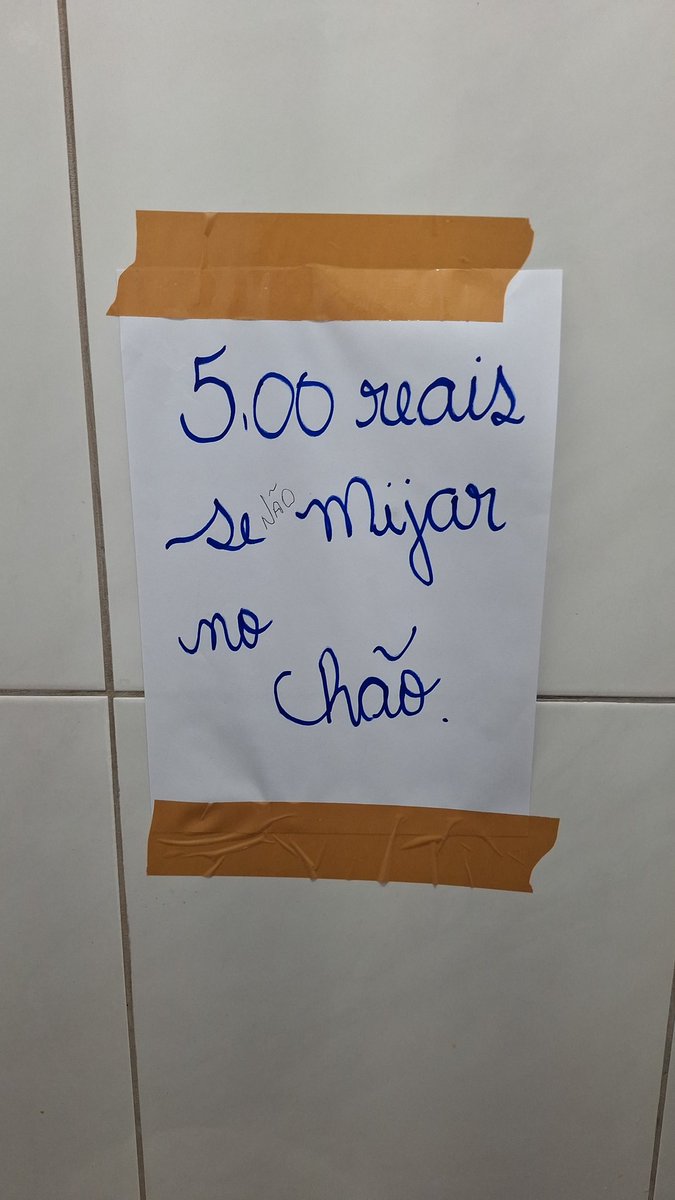 5.00 reais
se NÃO mijar
no
chão.